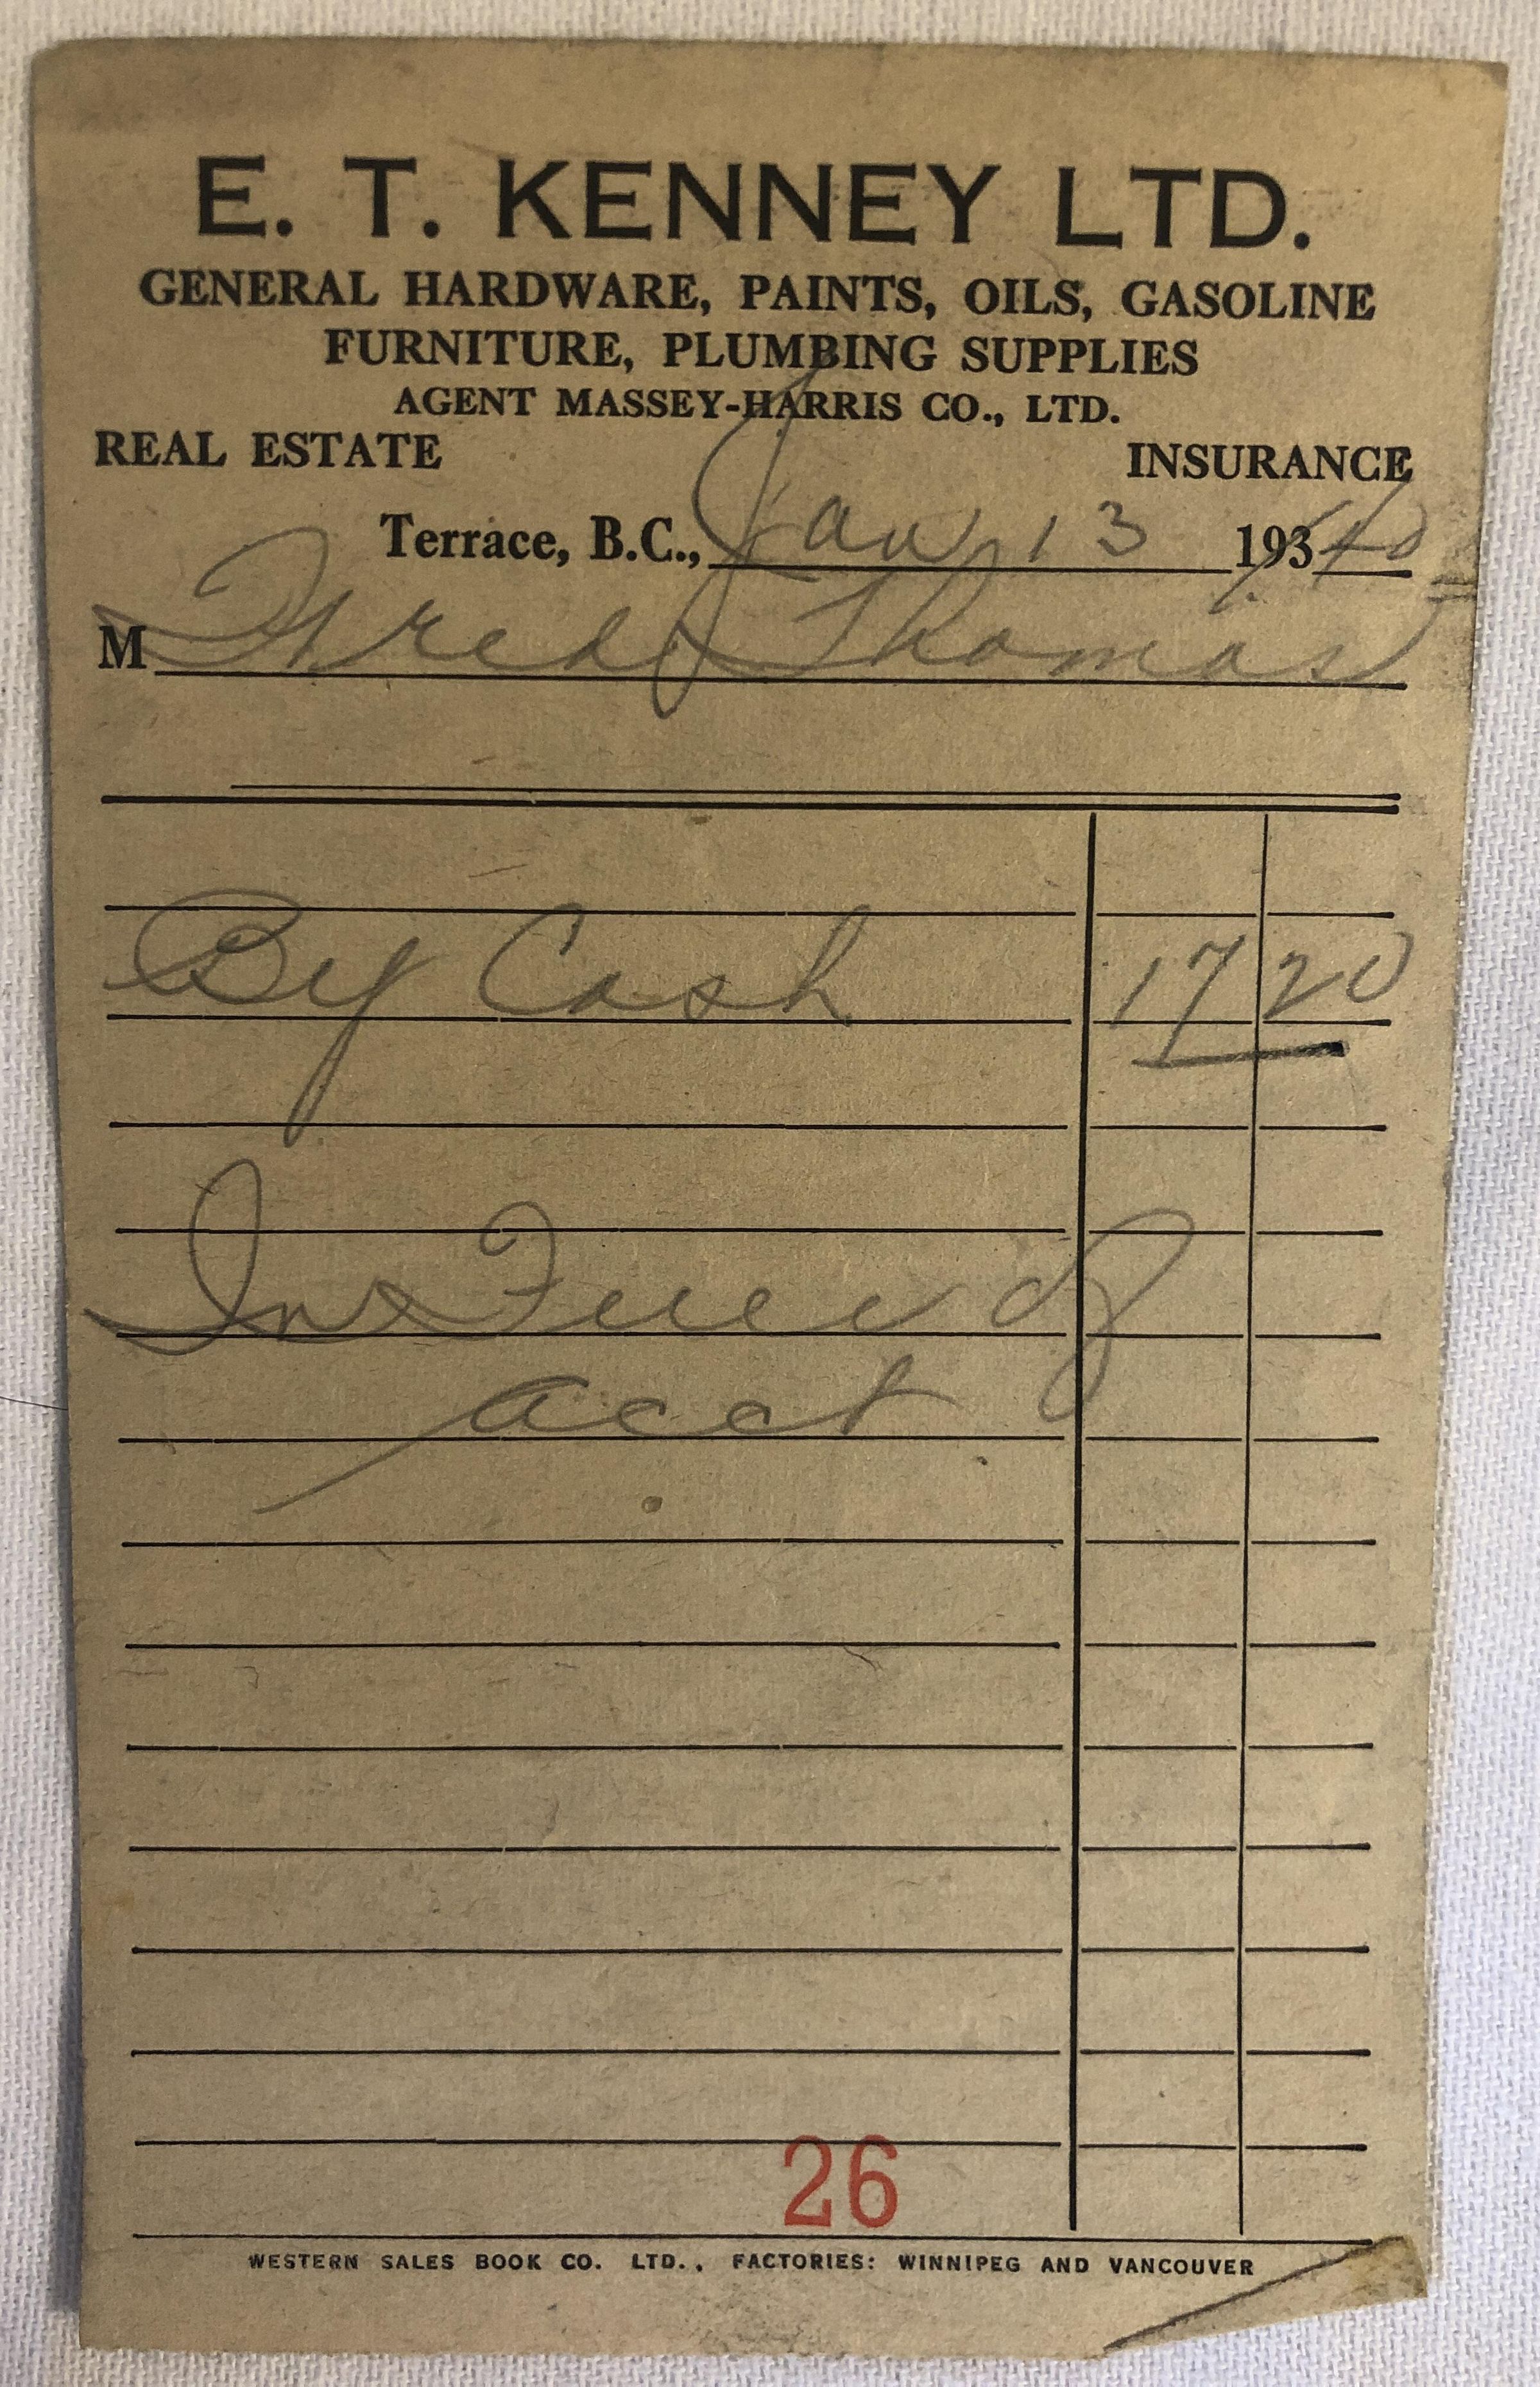 E. T. KENNEY LTD.
GENERAL HARDWARE, PAINTS, OILS, GASOLINE
FURNITURE, PLUMBING SUPPLIES
AGENT MASSEY-HARRIS CO., LTD.
REAL ESTATE INSURANCE
Terrace, B.C., Jan 13 193 40
M Fred Thomas
By Cash 17 20
In Full of
acct
26
WESTERN SALES BOOK CO. LTD., FACTORIES: WINNIPEG AND VANCOUVER